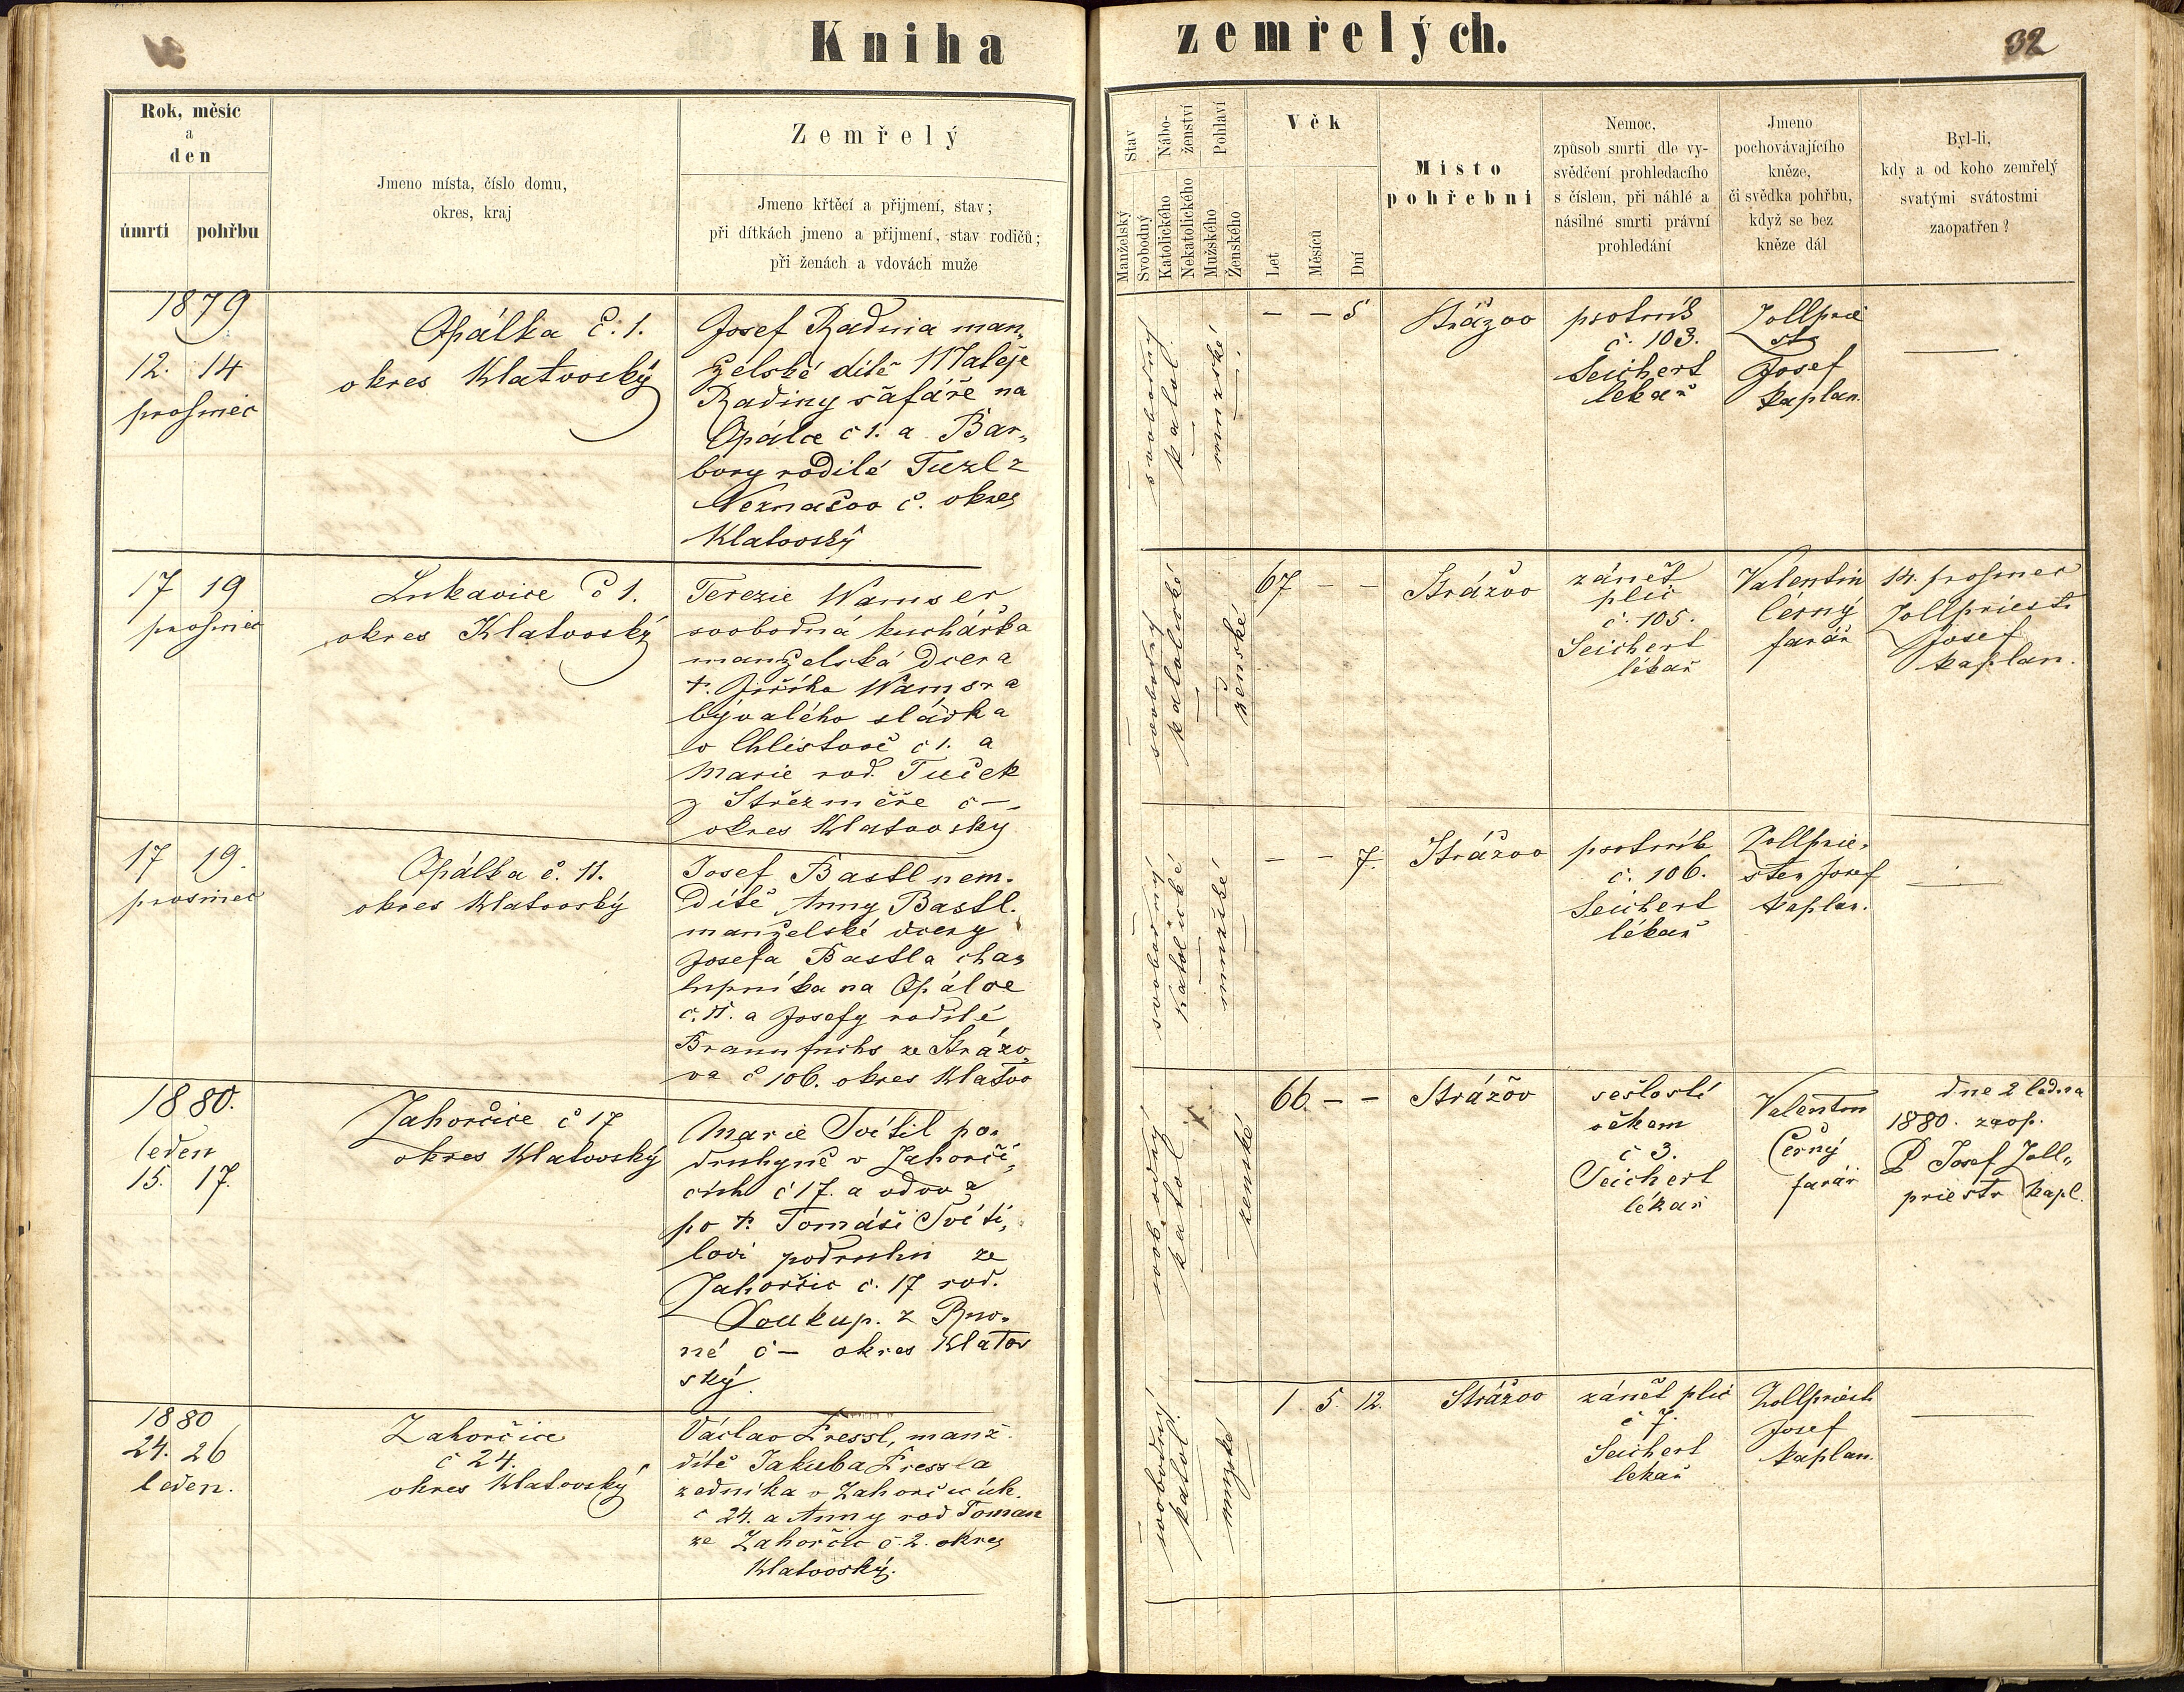 Kniha zemřelých.
32
Rok, měsíc
a
den
úmrtí pohřbu
Jmeno místa, číslo domu,
okres, kraj
Zemřelý
Jmeno křtěcí a přijmení, stav;
při dítkách jmeno a přijmení, stav rodičů;
při ženách a vdovách muže
Stav
Manželský
Svobodný
Nábo-
ženství
Katolického
Nekatolického
Pohlaví
Mužského
Ženského
Věk
Let
Měsíců
Dní
Místo
pohřební
Nemoc,
způsob smrti dle vy-
svědčení prohledacího
s číslem, při náhlé a
násilné smrti právní
prohledání
Jmeno
pochovávajícího
kněze,
či svědka pohřbu,
když se bez
kněze dál
Byl-li,
kdy a od koho zemřelý
svatými svátostmi
zaopatřen?
1879
12. 14
prosinec
Opálka č. 1.
okres Klatovský
Josef Radina man„
želské dítě Matěje
Radiny šafáře na
Opálce č 1. a Bar„
bory rodilé Tuzl z
Neznašov č. okres
Klatovský
svobodný
katol.
mužské
— — 5
Strážov
psotník
č. 103.
Seichert
lékař
Zollprie
str
Josef
kaplan.
—
17 19
prosinec
Lukavice č 1.
okres Klatovský
Terezie Wamser
svobodná kuchářka
manželská dcera
†. Jiříka Wamsra
bývalého sládka
v Chlistově č 1. a
Marie rod. Tuček
z Střezměře č —
okres Klatovský
svobodný
katolické
ženské
67 — —
Strážov
zánět
plic
č. 105.
Seichert
lékař
Valentin
Černý
farář
14. prosinec
Zollpriestr
Josef
kaplan.
17 19.
prosinec
Opálka č. 11.
okres Klatovský
Josef Bastl nem.
Dítě Anny Bastl.
manželské dcery
Josefa Bastla cha„
lupníka na Opálce
č. 11. a Josefy rodilé
Braunfuchs ze Strážo„
va č 106. okres Klatov
svobodný
katolické
mužské
— — 7.
Strážov
psotník
č. 106.
Seichert
lékař
Zollprie„
ster Josef
kaplan.
—
1880.
leden
15. 17.
Zahorčice č 17
okres Klatovský
Marie Svítil po„
druhyně v Zahorčí„
cích č 17. a vdova
po †. Tomáši Svíti„
lovi podruhu ze
Zahorčic č. 17 rod.
Soukup. z Rov„
né č — okres Klatov
ský.
svobodný
katol
ženské
66. — —
Strážov
sešlostí
věkem
č 3.
Seichert
lékař
Valentin
Černý
farář
dne 2 ledna
1880. zaop.
P Josef Zoll„
priestr kapl.
1880
24. 26
leden.
Zahorčice
č 24.
okres Klatovský
Václav Fressl, manž.
dítě Jakuba Fressla
zedníka v Zahorčicích.
č 24. a Anny rod Toman
ze Zahorčic č. 2. okres
Klatovský.
svobodný
katol.
mužské
1 5. 12.
Strážov
zánět plic
č 7.
Seichert
lékař
Zollpriestr
Josef
kaplan.
—